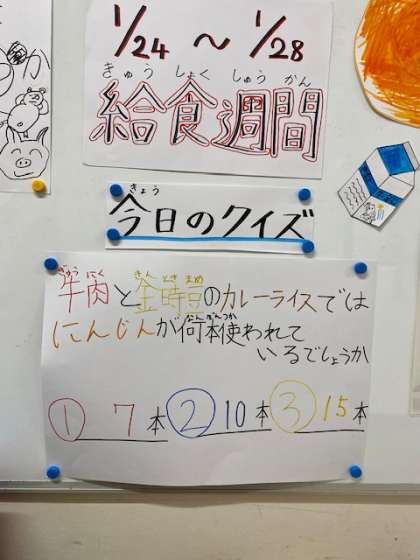 1/24 ～ 1/28
きゅう しょく しゅう かん
給食週間
きょう
今日のクイズ
ぎゅう にく きん とき まめ
牛肉と金時豆のカレーライスでは
なんぼんつか
にんじんが何本使われて
いるでしょうか
① 7本 ② 10本 ③ 15本